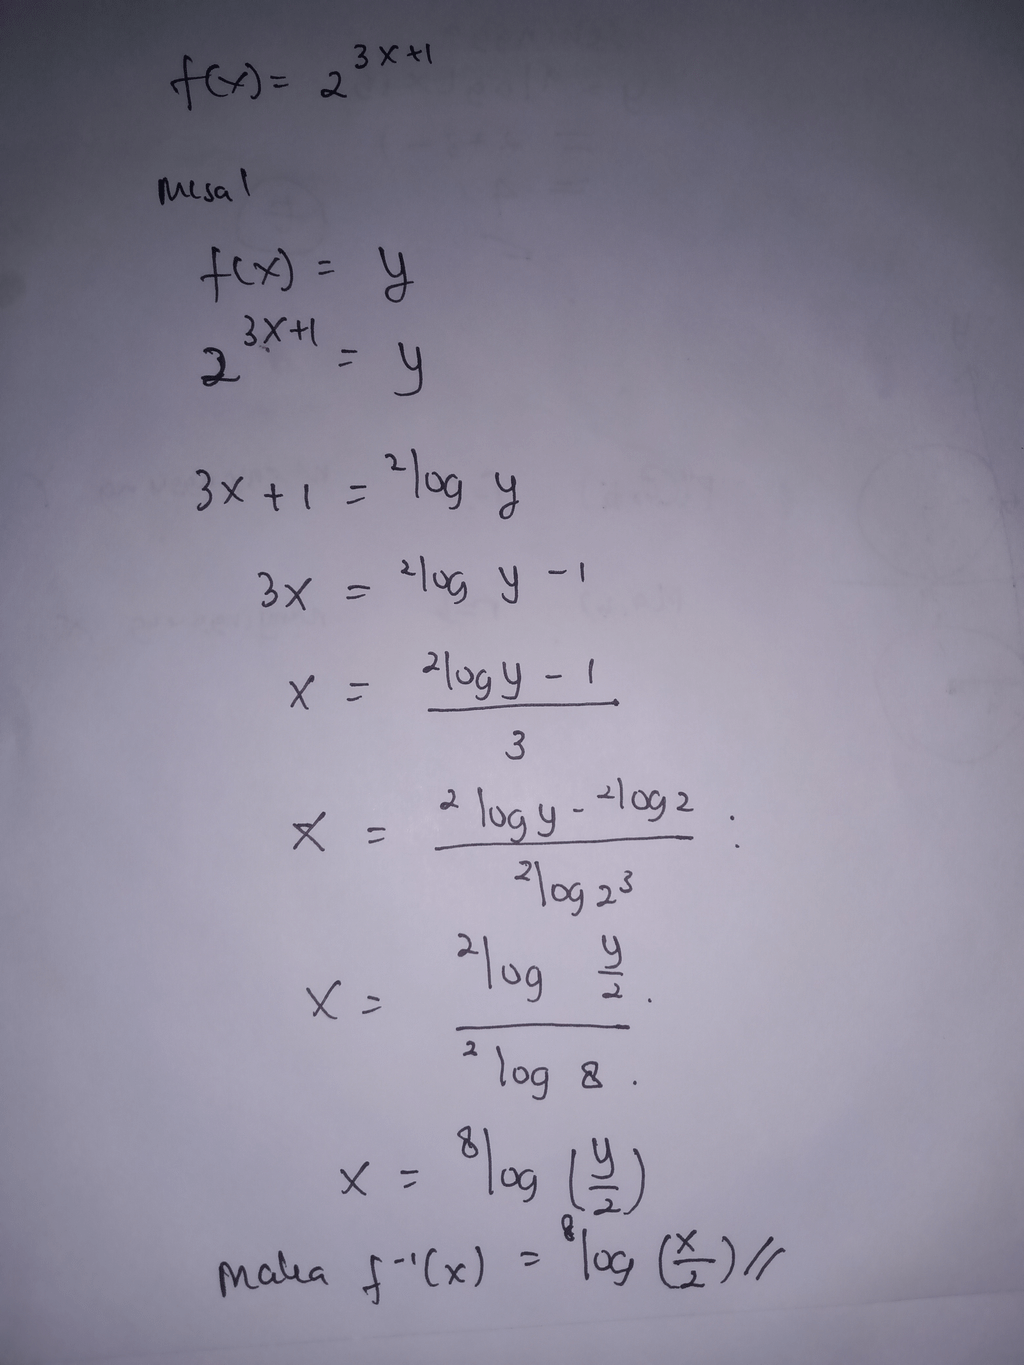 f(x) = 2^{3x+1}
misal
f(x) = y
2^{3x+1} = y
3x + 1 = ²log y
3x = ²log y - 1
x = \frac{²log y - 1}{3}
x = \frac{²log y - ²log 2}{²log 2³} :
x = \frac{²log \frac{y}{2}.}{²log 8.}
x = ⁸log (\frac{y}{2})
maka f⁻¹(x) = ⁸log (\frac{x}{2}) //